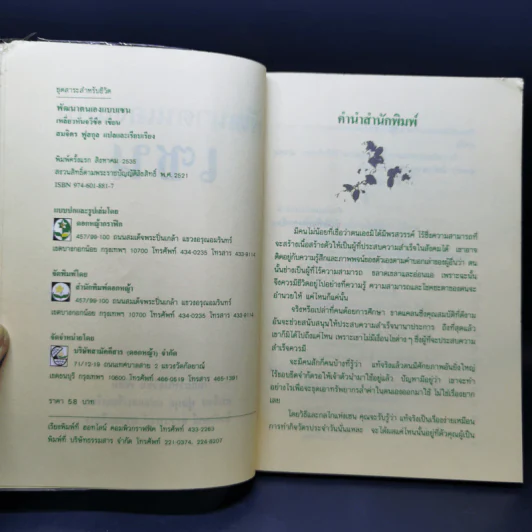 ชุดสาระสำหรับชีวิต
พัฒนาตนเองแบบเซน
เหลี่ยวพั่นอวิชิต เขียน
สมจิตร ฟูสกุล แปลและเรียบเรียง
พิมพ์ครั้งแรก สิงหาคม 2535
สงวนสิทธิ์ตามพระราชบัญญัติลิขสิทธิ์ พ.ศ. 2521
ISBN 974-601-881-7
แบบปกและรูปเล่มโดย
ดอกหญ้ากราฟิค
457/99-100 ถนนสมเด็จพระปิ่นเกล้า แขวงอรุณอมรินทร์
เขตบางกอกน้อย กรุงเทพฯ 10700 โทรศัพท์ 434-0235
จัดพิมพ์โดย
สำนักพิมพ์ดอกหญ้า
457/99-100 ถนนสมเด็จพระปิ่นเกล้า แขวงอรุณอมรินทร์
เขตบางกอกน้อย กรุงเทพฯ 10700 โทรศัพท์ 434-0235
จัดจำหน่ายโดย
71/12-19 ถนนเทศบาลสาย 2 แขวงวัดกัลยาณ์
เขตธนบุรี กรุงเทพฯ 10600 โทรศัพท์ 466-0519 โทรสาร 465-1381
ราคา 58 บาท
เรียงพิมพ์ที่ ฮอทไลน์ คอมพิวกราฟฟิค โทรศัพท์ 433-2263
พิมพ์ที่ บริษัทธรรมสาร จำกัด โทรศัพท์ 221-0374, 224-9207
คำนำสำนักพิมพ์
มีคนไม่น้อยที่เชื่อว่าตนเองมิได้มีพรสวรรค์ ไร้ซึ่งความสามารถที่
จะสร้างเนื้อสร้างตัวให้เป็นผู้ที่ประสบความสำเร็จในสังคมได้ เขาอาจ
ติดอยู่กับความรู้สึกและภาพพจน์ของตัวเองตามคำบอกเล่าของผู้อื่นว่า ตน
นั้นช่างเป็นผู้ที่ไร้ความสามารถ ขลาดเขลาและอ่อนแอ เพราะฉะนั้น
จึงควรมีชีวิตอยู่ไปอย่างที่ความรู้ ความสามารถและโชคชะตาของตนจะ
อำนวยให้ แค่ไหนก็แค่นั้น
จริงหรือเปล่าที่คนด้อยการศึกษา ขาดแคลนซึ่งคุณสมบัติที่ดีงาม
อันจะช่วยสนับสนุนให้ประสบความสำเร็จนานาประการ ถึงที่สุดแล้ว
เขาก็มิได้ไปถึงแค่ไหน เพราะเขาไม่มีเงื่อนไขต่าง ๆ ซึ่งผู้ที่จะประสบความ
สำเร็จควรมี
จะมีคนสักกี่คนบ้างที่รู้ว่า แท้จริงแล้วตนมีศักยภาพอันยิ่งใหญ่
ไร้ขอบขีดจำกัดรอให้เจ้าตัวนำมาใช้อยู่แล้ว ปัญหามีอยู่ว่า เขาจะทำ
อย่างไรเพื่อจะขุดเอาทรัพยากรล้ำค่าในตนเองออกมาใช้ ไม่ใช่เรื่องยาก
เลย
โดยวิธีและกลไกแห่งเซน คุณจะรับรู้ว่า แท้จริงเป็นเรื่องง่ายเหมือน
การทำกิจวัตรประจำวันนั่นแหละ จะได้ผลแค่ไหนนั้นอยู่ที่ตัวคุณผู้เป็น